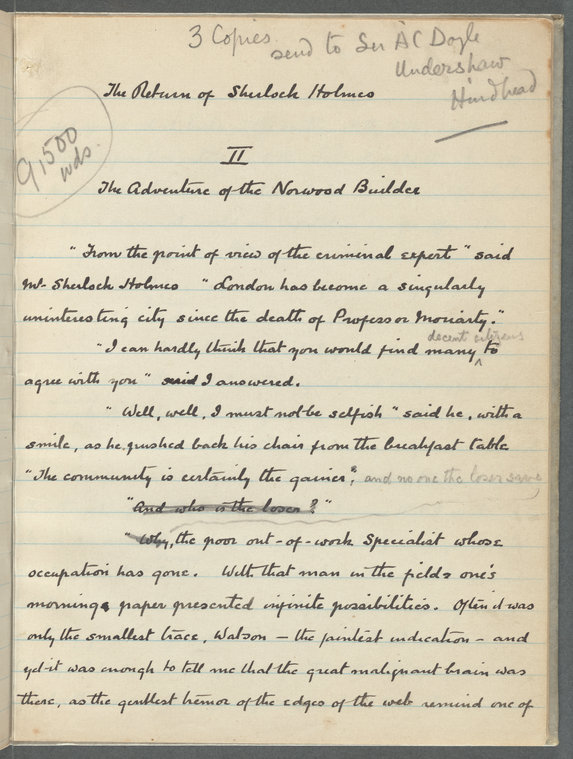 3 Copies.
send to Sir A C Doyle
Undershaw
Hindhead
The Return of Sherlock Holmes
9,500
wds.
II
The Adventure of the Norwood Builder
"From the point of view of the criminal expert" said
Mr. Sherlock Holmes "London has become a singularly
uninteresting city since the death of Professor Moriarty."
decent citizens
"I can hardly think that you would find many ^ to
agree with you" said I answered.
"Well, well, I must not be selfish" said he, with a
smile, as he pushed back his chair from the breakfast table
"The community is certainly the gainer, and no one the loser save
"And who is the loser?"
"Why, the poor out-of-work Specialist whose
occupation has gone. With that man in the field one's
morning paper presented infinite possibilities. Often it was
only the smallest trace, Watson — the faintest indication — and
yet it was enough to tell me that the great malignant brain was
there, as the gentlest tremor of the edges of the web remind one of